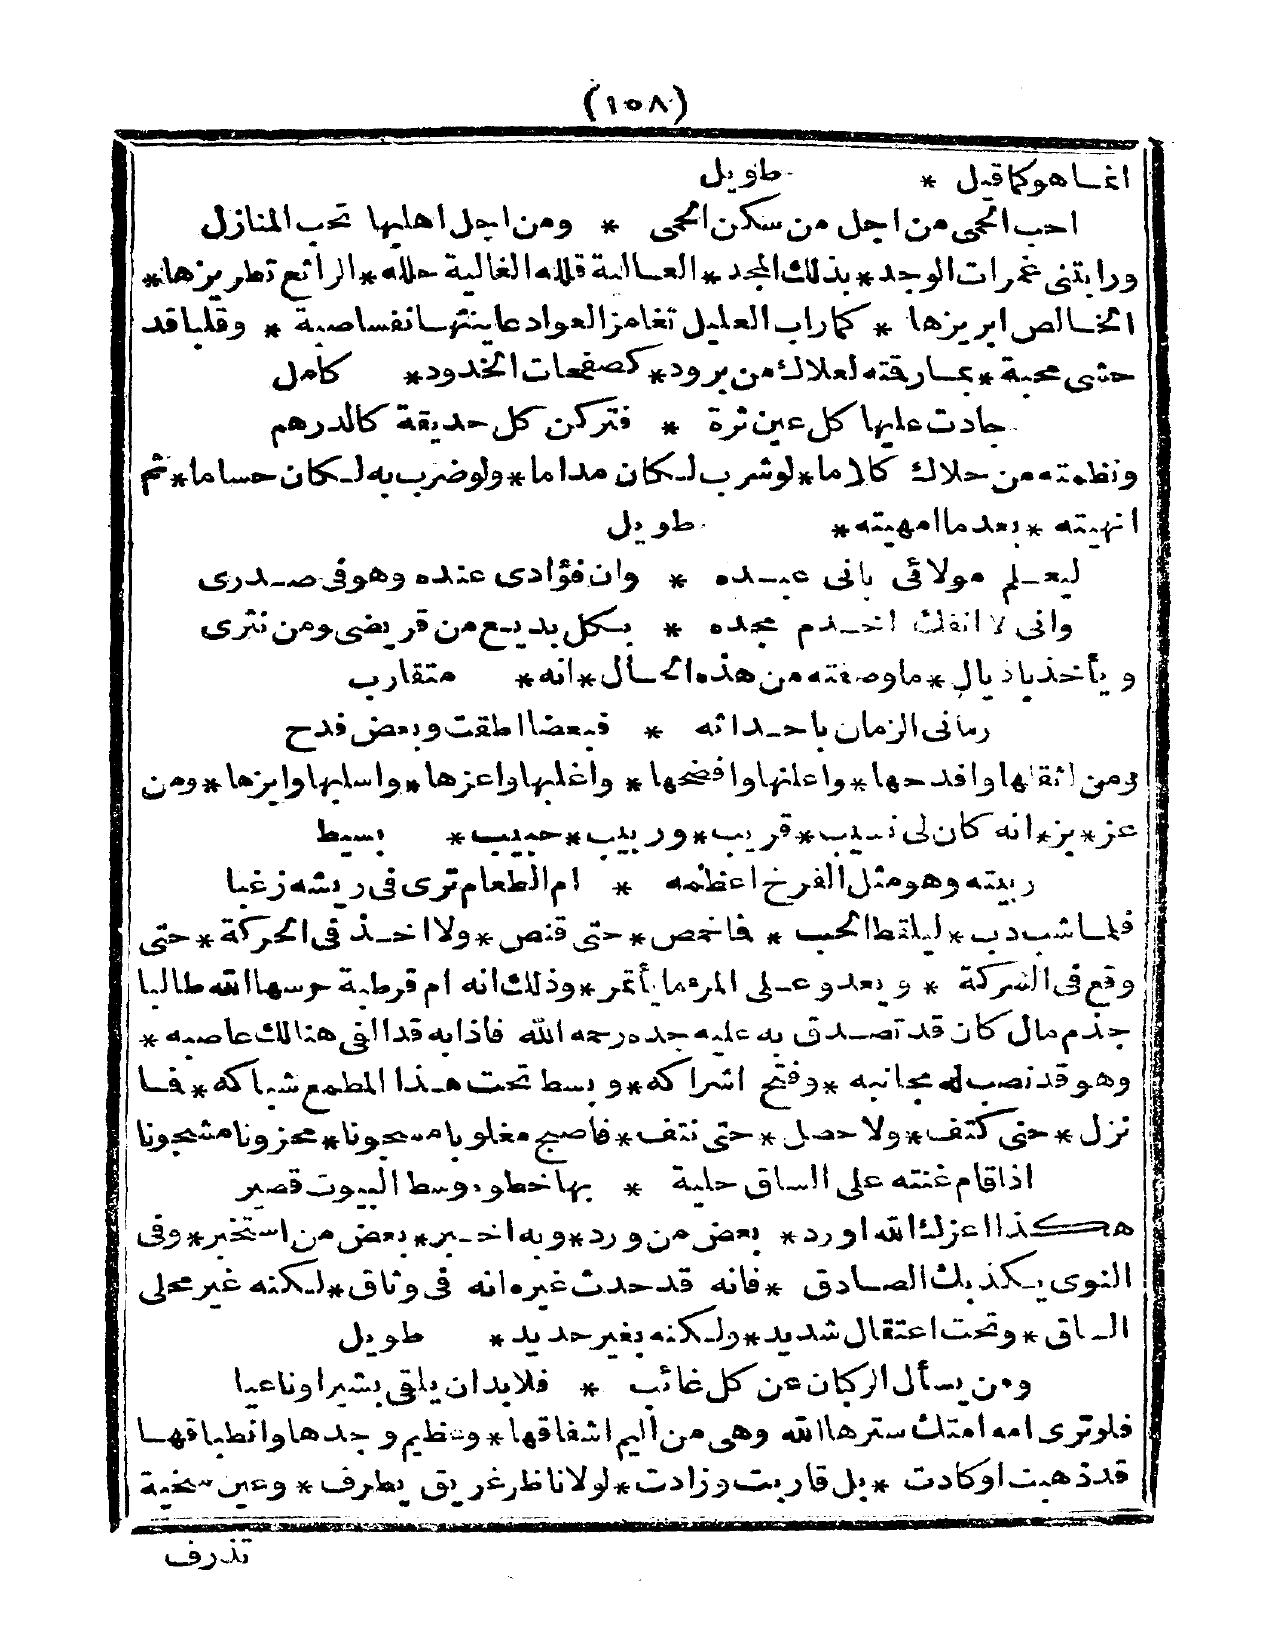 (١٥٨)
انما هو كما قيل * طويل
احب الحمى من اجل من سكن الحمى * ومن اجل اهليها تحب المنازل
ورابتنى غمرات الوجد * بذلك المجد * العالية قلله الغالية حلله * الرائع تطريزها *
الخالص ابريزها * كما راب العليل تغامز العواد عاينتها نفسا صبة * وقلبا قد
حشى محبة * بمارقته لعلاك من برود * كصفحات الخدود * كامل
جادت عليها كل عين ثرة * فتركن كل حديقة كالدرهم
ونظمته من حلاك كلاما * لو شرب لكان مداما * ولو ضرب به لكان حساما * ثم
انهيته * بعد ما امهيته * طويل
ليعلم مولائى بانى عبده * وان فؤادى عنده وهو فى صدرى
وانى لا انفك اخدم مجده * بكل بديع من قريضى ومن نثرى
ويأخذ باذيال * ما وصفته من هذه الحال * انه * متقارب
رمانى الزمان باحداثه * فبعضا اطقت وبعض فدح
ومن اثقلها وافدحها * واعلنها وافضحها * واغلبها واعزها * واسلبها وابزها * ومن
عز * بز * انه كان لى نسيب * قريب * وربيب * حبيب * بسيط
ربيته وهو مثل الفرخ اعظمه * ام الطعام ترى فى ريشه زغبا
فلما شب دب * ليلقط الحب * فانخمص * حتى قنص * ولا اخذ فى الحركة * حتى
وقع فى الشركة * ويعدو على المرء ما يأتمر * وذلك انه ام قرطبة حرسها الله طالبا
جذم مال كان قد تصدق به عليه جده رحمه الله فاذا به قد الفى هنالك عاصبه *
وهو قد نصب له مجانبه * وفتح اشراكه * وبسط تحت هذا المطمع شباكه * فما
نزل * حتى كتف * ولا حصل * حتى نتف * فاصبح مغلوبا مسجونا * محزونا مشجونا
اذا قام غنته على الساق حلية * بها خطوه وسط البيوت قصير
هكذا اعزك الله اورد * بعض من ورد * وبه اخبر * بعض من استخبر * وفى
النوى يكذبك الصادق * فانه قد حدث غيره انه فى وثاق * لكنه غير محلى
الساق * وتحت اعتقال شديد * ولكنه بغير حديد * طويل
ومن يسأل الركبان عن كل غائب * فلا بد ان يلقى بشيرا وناعيا
فلو ترى امه امتك سترها الله وهى من اليم اشفاقها * وعظيم وجدها وانطباقها
قد ذهبت او كادت * بل قاربت وزادت * لولا ناظر غريق يطرف * وعين سخية
تذرف